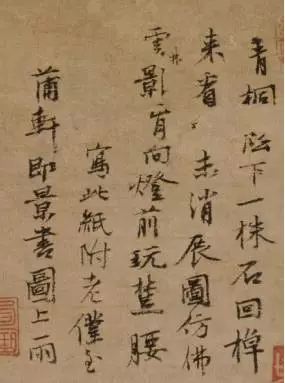 青桐陰下一株石回棹
来看未消展圖仿佛
雲林影肯向燈前玩楚腰
寫此紙附老僕至
蒲軒即景書圖上雨